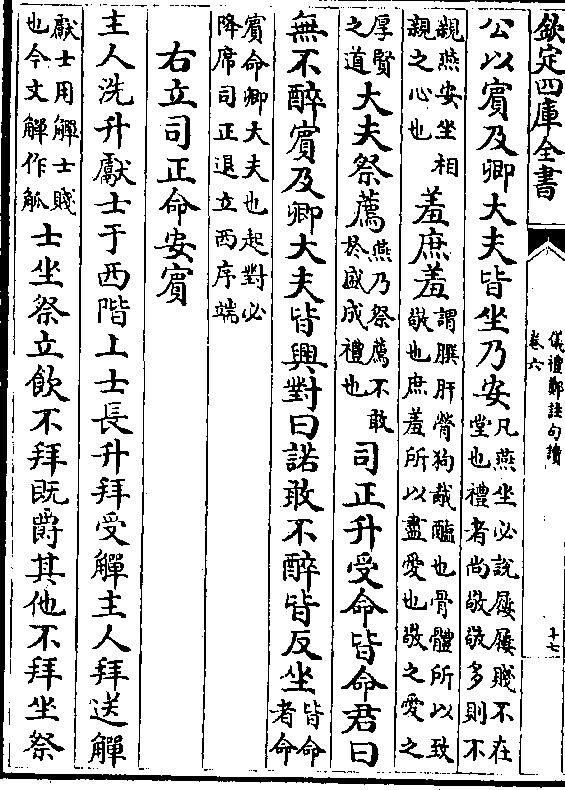 欽定四庫全書
儀禮鄭註句讀
卷六
十七
公以賓及卿大夫皆坐乃安凡燕坐必說屨屨賤不在堂也禮者尚敬敬多則不
親燕安坐相親之心也羞庶羞謂䐑肝膋狗胾醢也骨體所以致敬也庶羞所以盡愛也敬之愛之
厚賢之道大夫祭薦燕乃祭薦不敢於盛成禮也司正升受命皆命君曰
無不醉賓及卿大夫皆興對曰諾敢不醉皆反坐皆命者命
賓命卿大夫也起對必降席司正退立西序端
右立司正命安賓
主人洗升獻士于西階上士長升拜受觶主人拜送觶
獻士用觶士賤也今文觶作觚士坐祭立飲不拜既爵其他不拜坐祭